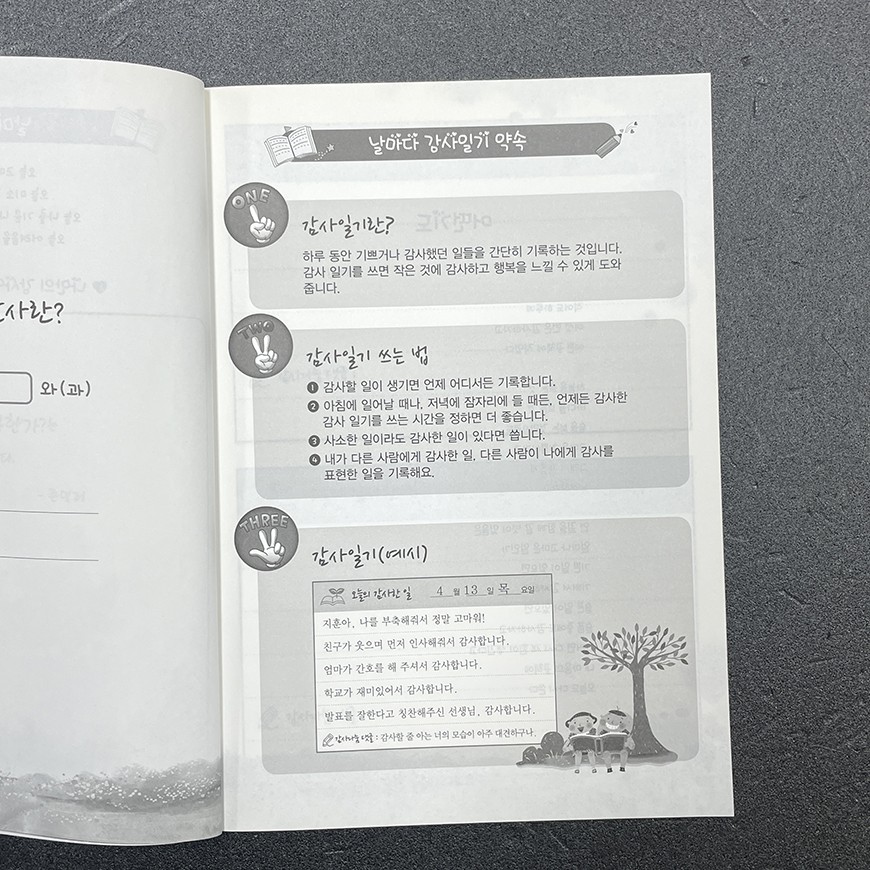 사란?
와(과)
날마다 감사일기 약속
ONE
감사일기란?
하루 동안 기쁘거나 감사했던 일들을 간단히 기록하는 것입니다.
감사 일기를 쓰면 작은 것에 감사하고 행복을 느낄 수 있게 도와
줍니다.
TWO
감사일기 쓰는 법
❶ 감사할 일이 생기면 언제 어디서든 기록합니다.
❷ 아침에 일어날 때나, 저녁에 잠자리에 들 때든, 언제든 감사한
감사 일기를 쓰는 시간을 정하면 더 좋습니다.
❸ 사소한 일이라도 감사한 일이 있다면 씁니다.
❹ 내가 다른 사람에게 감사한 일, 다른 사람이 나에게 감사를
표현한 일을 기록해요.
THREE
감사일기(예시)
오늘의 감사한 일 4 월 13 일 목 요일
지훈아, 나를 부축해줘서 정말 고마워!
친구가 웃으며 먼저 인사해줘서 감사합니다.
엄마가 간호를 해 주셔서 감사합니다.
학교가 재미있어서 감사합니다.
발표를 잘한다고 칭찬해주신 선생님, 감사합니다.
감사나눔 댓글 : 감사할 줄 아는 너의 모습이 아주 대견하구나.